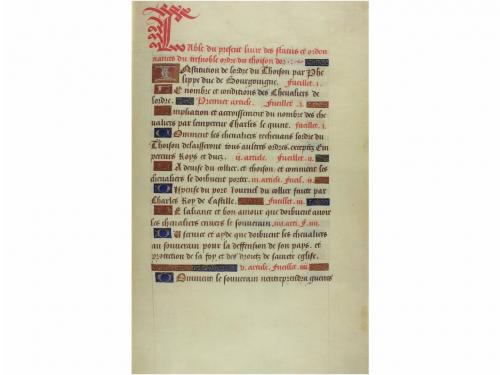 Table du present livre des statuts et ordon
nances du tresnoble ordre du thoison dor
Institution de lordre du Thoison par Phe
lippe duc de Bourgoingne. Fueillet. i.
Le nombre et conditions des Chevaliers de
lordre. Premier article. Fueillet. i.
Ampliation et accroissement du nombre des che
valiers par lempereur Charles le quint. Fueillet. i.
Comment les chevaliers rechevans lordre du
Thoison delaisseront tous aultres ordres. exceptez Em
pereurs Roys et ducz. ii. article. Fueillet. ii.
La devise du collier. et thoison. et comment les
chevaliers le doibvent porter. iii. article. Fueil. ii.
Dispense du port Journel du collier faicte par
Charles Roy de Castille. Fueillet. iii.
De laliance et bon amour que doibvent avoir
les chevaliers envers le souverain. iiii. arti. F. iiii.
Du service et ayde que doibvent les chevaliers
au souverain pour la deffension de son pays. et
protection de la foy et des droitz de saincte eglise.
v. article. Fueillet. iiii.
Comment le souverain nentreprendra guerres